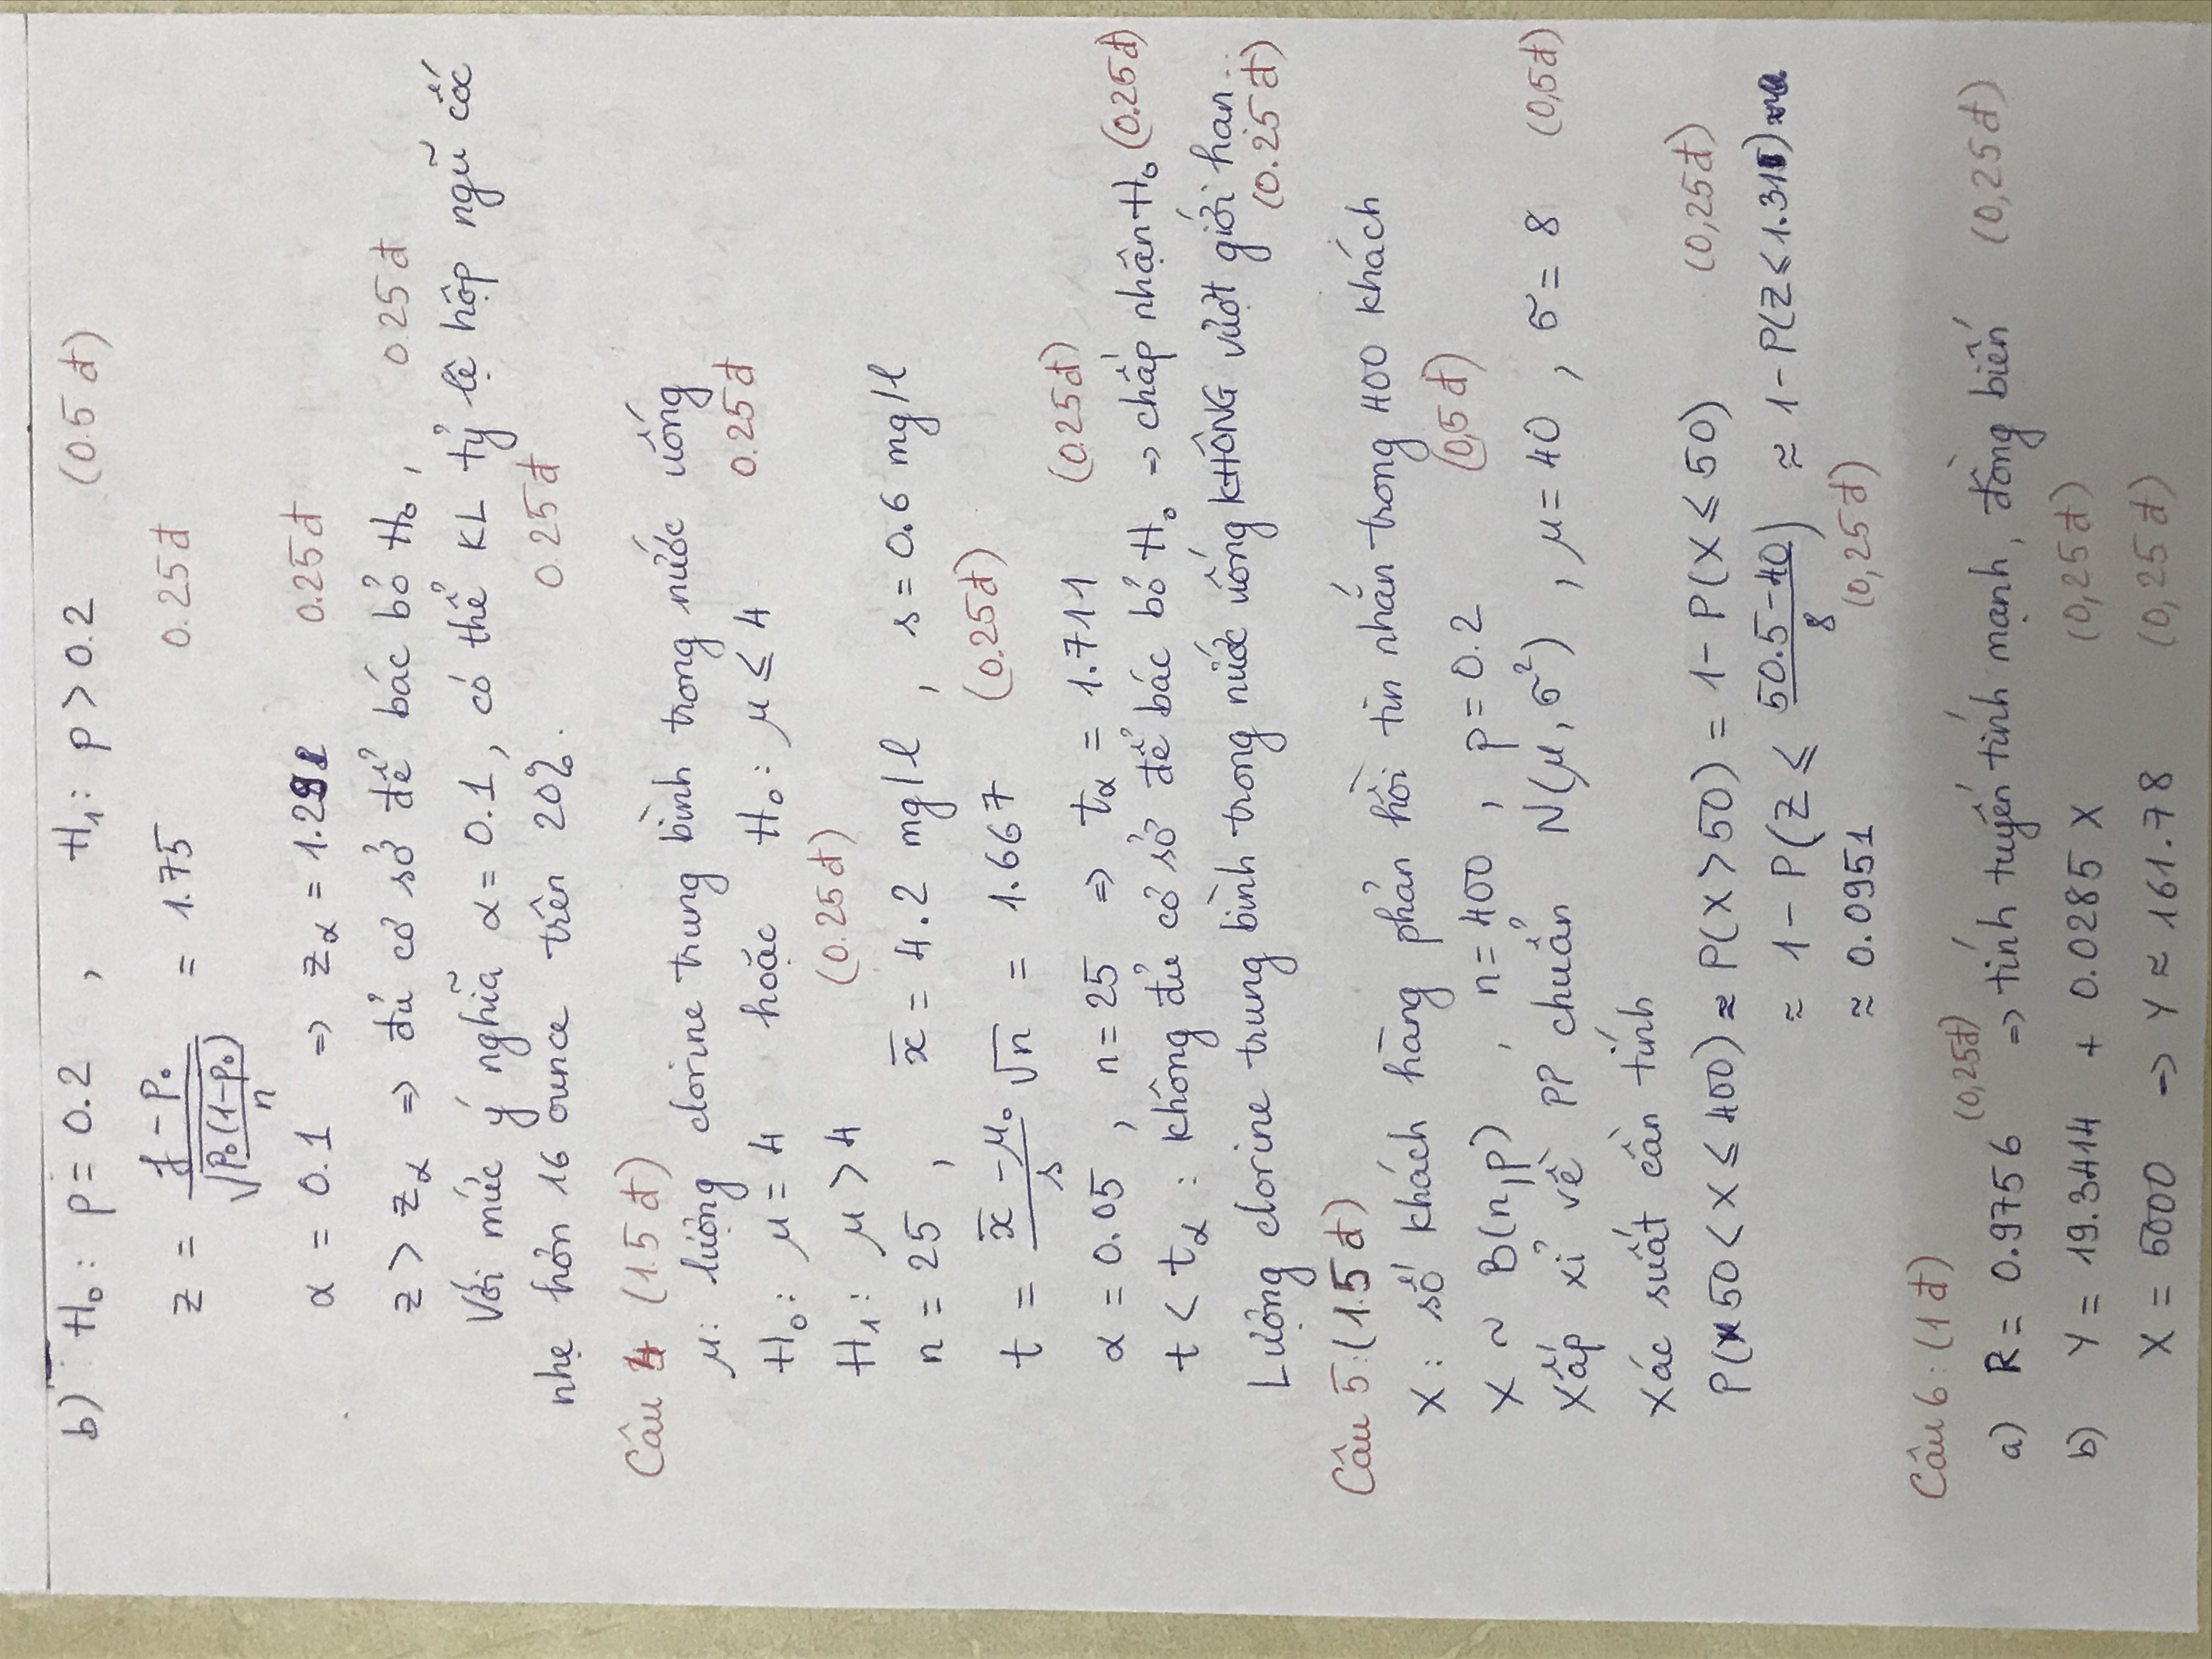 b) H₀: p = 0.2 , H₁: p > 0.2 (0.5 đ)
z = (f - p₀) / √(p₀(1-p₀)/n) = 1.75 0.25 đ
α = 0.1 ⇒ z_α = 0.25 đ
z > z_α ⇒ đủ cơ sở để bác bỏ H₀, 0.25 đ
Với mức ý nghĩa α = 0.1, có thể KL tỷ lệ hộp ngũ cốc
nhẹ hơn 16 ounce trên 20%. 0.25 đ
Câu 4 (1.5 đ)
μ: lượng clorine trung bình trong nước uống
H₀: μ = 4 hoặc H₀: μ ≤ 4 0.25 đ
H₁: μ > 4 (0.25 đ)
n = 25 , x̄ = 4.2 mg/l , s = 0.6 mg/l
t = (x̄ - μ₀)/s √n = 1.667 (0.25 đ)
α = 0.05 , n = 25 ⇒ t_α = 1.711 (0.25 đ)
t < t_α : không đủ cơ sở để bác bỏ H₀ → chấp nhận H₀ (0.25 đ)
Lượng clorine trung bình trong nước uống KHÔNG vượt giới hạn..
(0.25 đ)
Câu 5: (1.5 đ)
X: số khách hàng phản hồi tin nhắn trong 400 khách
X ~ B(n,p) , n = 400 , p = 0.2 (0,5 đ)
Xấp xỉ về PP chuẩn N(μ, σ²) , μ = 40 , σ = 8 (0,5 đ)
Xác suất cần tính
P(50 < X ≤ 400) ≈ P(X > 50) = 1 - P(X ≤ 50) (0,25 đ)
≈ 1 - P(Z ≤ (50.5 - 40)/8) ≈ 1 - P(Z ≤ 1.31)
≈ 0.0951 (0,25 đ)
Câu 6: (1 đ)
a) R = 0.9756 (0,25 đ) ⇒ tính tuyến tính mạnh, đồng biến (0,25 đ)
b) Y = 19.3414 + 0.0285 X (0,25 đ)
X = 5000 → Y ≈ 161.78 (0,25 đ)